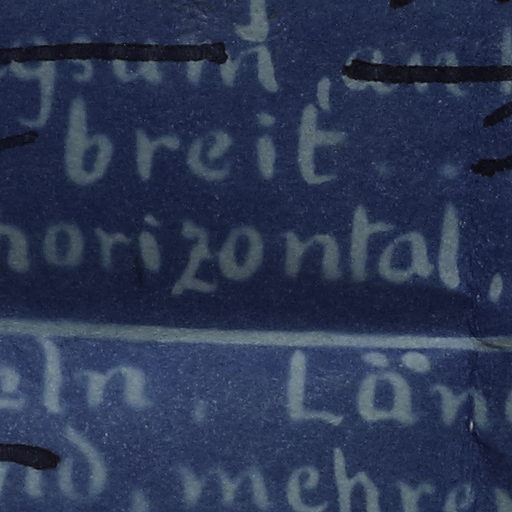 breit
horizontal,
eln, Län
nd, mehre